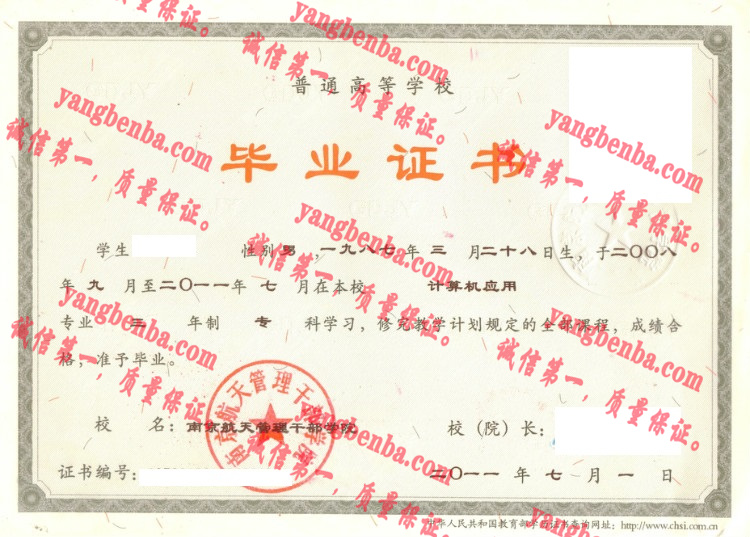 普通高等学校
毕业证书
学生 性别 男 ,一九八七年 三 月二十八日生，于二〇〇八
年 九 月至二〇一一年 七 月在本校 计算机应用
专业 三 年制 专 科学习，修完教学计划规定的全部课程，成绩合
格，准予毕业。
校 名：南京航天管理干部学院 校（院）长：
南京航天管理干部学院
证书编号： 二〇一一年七月一日
中华人民共和国教育部学历证书查询网址：http://www.chsi.com.cn
yangbenba.com
诚信第一，质量保证。
yangbenba.com
诚信第一，质量保证。
yangbenba.com
诚信第一，质量保证。
yangbenba.com
诚信第一，质量保证。
yangbenba.com
诚信第一，质量保证。
yangbenba.com
诚信第一，质量保证。
yangbenba.com
诚信第一，质量保证。
yangbenba.com
诚信第一，质量保证。